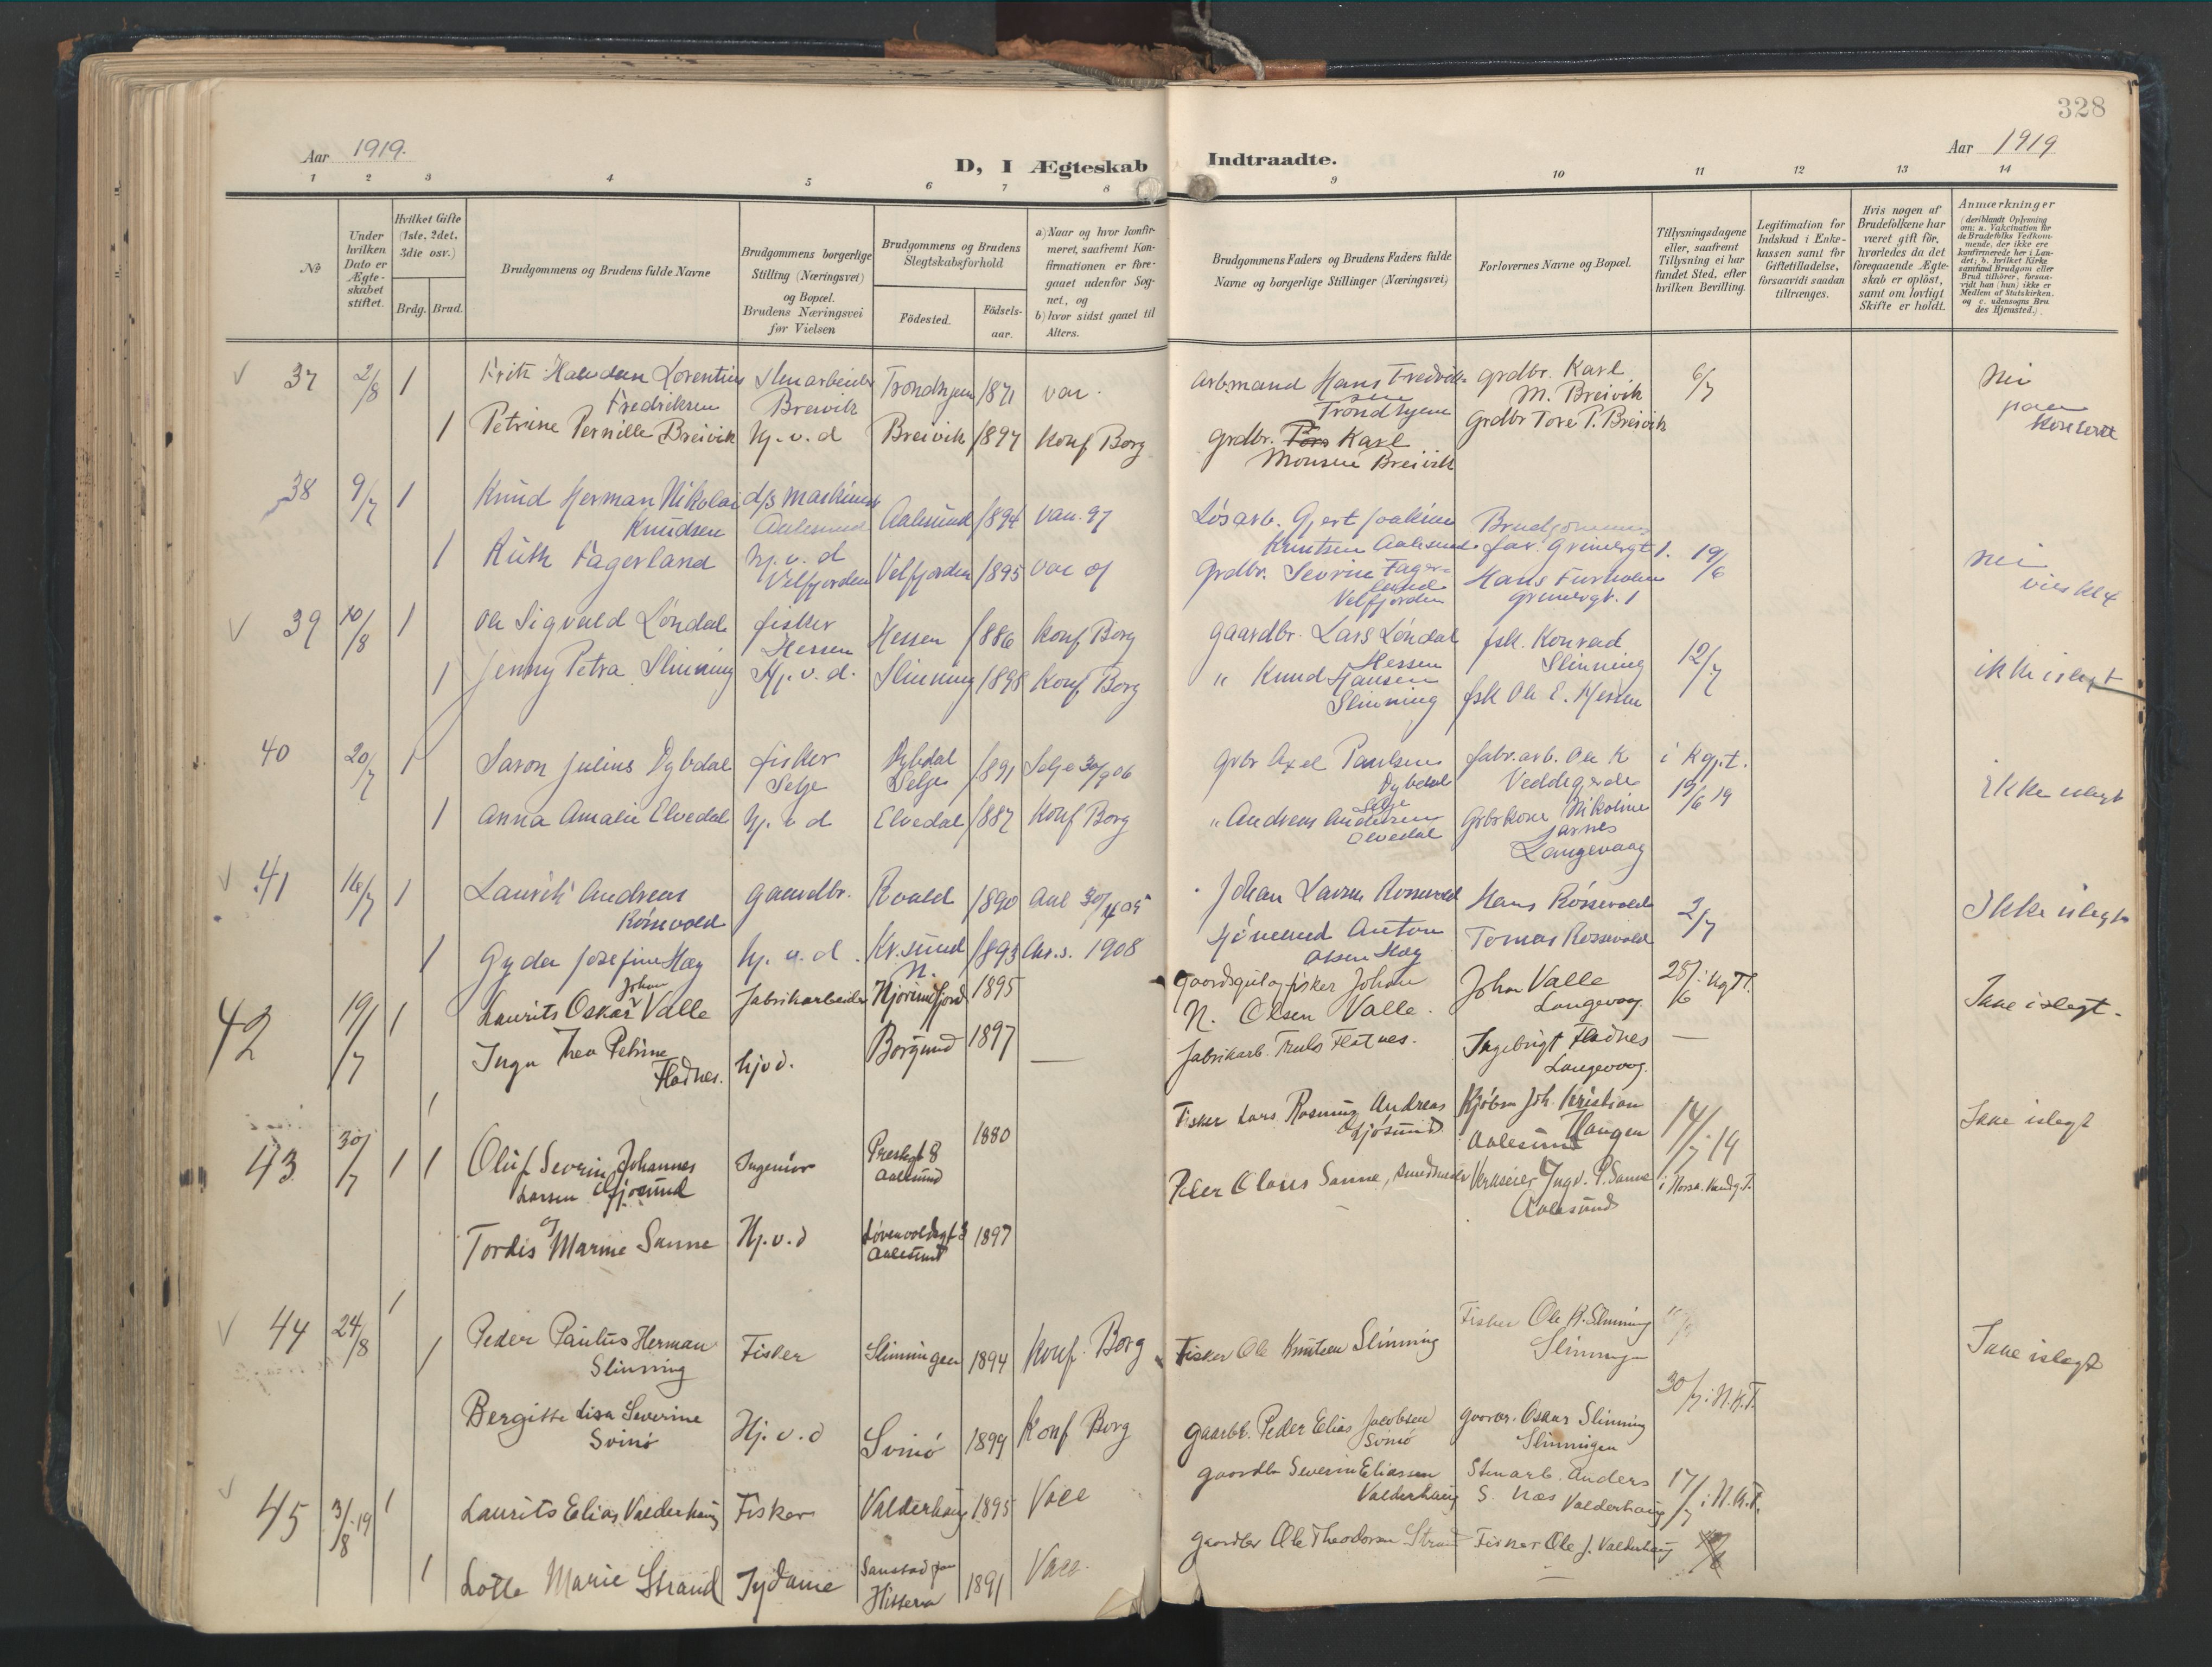 328
Aar 1919.
D, I Ægteskab
Indtraadte.
Aar 1919
1 2 3 4 5 6 7 8 9 10 11 12 13 14
No
Under hvilken Dato er Ægteskabet stiftet.
Hvilket Gifte (1ste, 2det, 3die osv.)
Brdg. Brud.
Brudgommens og Brudens fulde Navne
Brudgommens borgerlige Stilling (Næringsvei) og Bopæl. Brudens Næringsvei før Vielsen
Brudgommens og Brudens Slegtskabsforhold
Födested.
Födsels-aar.
a) Naar og hvor konfirmeret, saafremt Konfirmationen er foregaaet udenfor Sognet, og
b) hvor sidst gaaet til Alters.
Brudgommens Faders og Brudens Faders fulde Navne og borgerlige Stillinger (Næringsvei)
Forlovernes Navne og Bopæl.
Tillysningsdagene eller, saafremt Tillysning ei har fundet Sted, efter hvilken Bevilling.
Legitimation for Indskud i Enkekassen samt for Giftetilladelse, forsaavidt saadan tiltrænges.
Hvis nogen af Brudefolkene har været gift før, hvorledes da det foregaaende Ægteskab er oplöst, samt om lovligt Skifte er holdt.
Anmærkninger
(deriblandt Oplysning om: a. Vakcination for de Brudefolks Vedkommende, der ikke ere konfirmerede her i Landet; b. hvilket Kirkesamfund Brudgom eller Brud tilhører, forsaavidt han (hun) ikke er Medlem af Statskirken, og c. udensogns Brudes Hjemsted.)
37 2/8 1 Fritz Halvdan Lorentius Stenarbeider Trondhjem 1871 vac. arbmand Hans Fredrik- grdbr. Karl 6/7 nei
Fredriksen Breivik sen Trondhjem M. Breivik
1 Petrine Pernille Breivik hj.v.d Breivik 1897 Konf Borg grdbr. Karl Grdbr Tore P. Breivik
Monsen Breivik
38 9/7 1 Knud Herman Nikolai d/s maskinist Aalesund 1894 vac. og Løsarb. Gjert Joakim Brudgommens
Knudsen Aalesund Knutsen Aalesund far. Grimergt 1. 19/6 nei
1 Ruth Fagerland hj.v.d Velfjorden 1895 vac og Grdbr. Sevrin Fager- Hans Furholm
Velfjorden land Velfjorden Grimergt. 1
39 10/8 1 Ole Sigvald Løndal fisker Hessen 1886 Konf Borg gaardbr. Lars Løndal fsk. Konrad 12/7
Hessen Hessen Slinning
1 Jenny Petra Slinning Hj.v.d. Slinning 1898 Konf Borg " Knud Hansen fsk Ole E. Hessen ikke i slegt
Slinning
40 20/7 1 Saron Julius Dybdal fisker Dybdal 1891 Selje 30/9 06 grbr Axel Paulsen fabr.arb. Ole K i Kgj.t.
Selje Selje Dybdal Selje Veddegjerde 19/6 19
1 Anna Amalie Elvedal hj.v.d Elvedal 1887 Konf Borg " Andreas Andersen Grbrkone Nikoline Ikke i slegt
Elvedal Sarnes Langevaag
41 16/7 1 Laurits Andreas gaardbr. Roald 1890 Aal 30/4 05 Johan Røssevold Hans Røssevold 2/7 Ikke i slegt
Røsevold
1 Gyda Josefine Hag hj.v.d. Kr.sund N. 1893 Kr.s. 1908 Anton Olsen Hag Tomas Røssevold
42 19/7 1 Laurits Oskar Johan Valle Fabrikarbeider Hjørundfjord 1895 Johan John Valle 25/6 i kgT. Ikke i slegt.
N. Olsen Valle. Langevaag.
Inga Thea Petrine hjvd. Borgund 1897 — Fabrikarb. Truls Flatnes. Ingebrigt Fladnes —
Fladnes. Langevaag.
1
43 30/7 1 1 Oluf Severin Johannes Ingeniør Prestegt 8 1880 Fisker Lars Rasmus Andreas Kjøbm Joh. Kristian 14/7 19 Ikke i slegt
Larsen Gjøsund Aalesund Gjøsund Haugen Aalesund
og
Tordis Marine Sanne Hj.v.d Løvenvoldgt 3 1897 Peter Olaus Sanne, Verkseier Ingv. P. Sanne
Aalesund Aalesund
1
44 24/8 1 Peder Paulus Herman Fisker Slinningen 1894 Konf. Borg Fisker Ole Knutsen Slinning Fisker Ole K. Slinning Ikke i slegt
Slinning Slinningen
Bergitte Lisa Severine Hj.v.d Svinø 1899 Konf Borg gaarbr. Peder Elias Jacobsen gaarbr. Oskar Slinning 30/7 i N.K.T.
Svinø Svinø Slinningen
45 3/8 19 1 Laurits Elias Valderhaug Fisker Valderhaug 1895 Vacc gaardbr Severin Eliassen Stenarb. Anders 17/7 i N.K.T.
Valderhaug S. Næs Valderhaug
1 Lotte Marie Strand Sydame Hitteren 1891 Vacc. gaardbr Ole Theodorsen Strand Fisker Ole J. Valderhaug